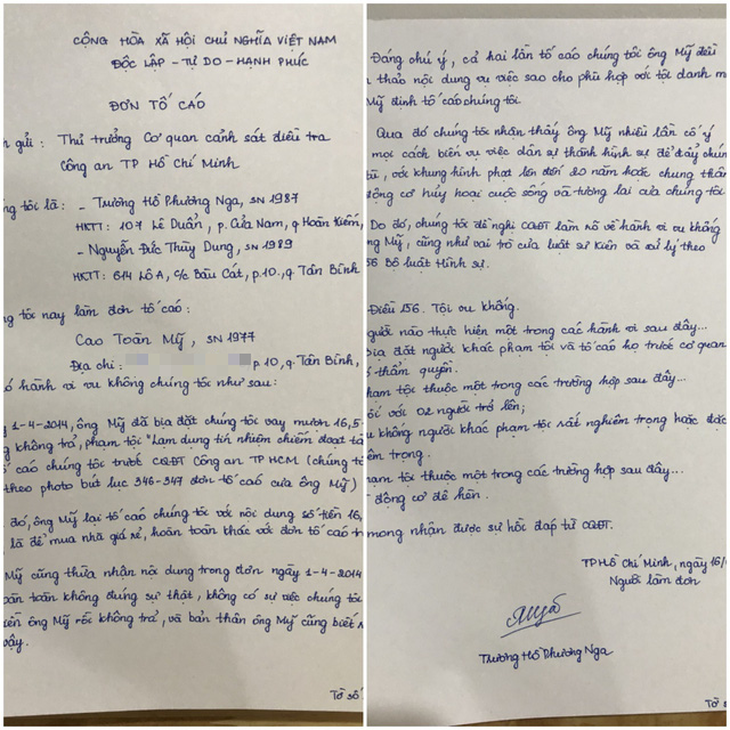 CỘNG HÒA XÃ HỘI CHỦ NGHĨA VIỆT NAM
ĐỘC LẬP - TỰ DO - HẠNH PHÚC
ĐƠN TỐ CÁO
gửi: Thủ trưởng Cơ quan cảnh sát điều tra
Công an TP Hồ Chí Minh
tôi là: - Trương Hồ Phương Nga, SN 1987
HKTT: 107 Lê Duẩn, p. Cửa Nam, q Hoàn Kiếm,
- Nguyễn Đức Thùy Dung, SN 1989
HKTT: 614 Lô A, C/c Bàu Cát, p.10., q. Tân Bình
tôi nay làm đơn tố cáo:
Cao Toàn Mỹ, SN 1977
Địa chỉ: p 10, q Tân Bình,
hành vi vu khống chúng tôi như sau:
1-4-2014, ông Mỹ đã bịa đặt chúng tôi vay mượn 16,5
không trả, phạm tội "Lạm dụng tín nhiệm chiếm đoạt
cáo chúng tôi trước CQĐT Công an TP HCM (chúng
theo photo bút lục 346-347 đơn tố cáo của ông Mỹ)
đó, ông Mỹ lại tố cáo chúng tôi với nội dung số tiền 16,
là để mua nhà giá rẻ, hoàn toàn khác với đơn tố cáo
Mỹ cũng thừa nhận nội dung trong đơn ngày 1-4-2014
toàn không đúng sự thật, không có sự việc chúng tôi
tiền ông Mỹ rồi không trả, và bản thân ông Mỹ cũng biết
vậy.
Tờ số
Đáng chú ý, cả hai lần tố cáo chúng tôi ông Mỹ đều
thảo nội dung vụ việc sao cho phù hợp với tội danh
Mỹ định tố cáo chúng tôi.
Qua đó chúng tôi nhận thấy ông Mỹ nhiều lần cố ý
mọi cách biến vụ việc dân sự thành hình sự để đẩy
tù, với khung hình phạt lên đến 20 năm hoặc chung thân
động cơ hủy hoại cuộc sống và tương lai của chúng tôi
Do đó, chúng tôi đề nghị CQĐT làm rõ về hành vi vu khống
Mỹ, cũng như vai trò của luật sư Kiên và xử lý theo
Bộ luật Hình sự.
Điều 156. Tội vu khống.
người nào thực hiện một trong các hành vi sau đây...
bịa đặt người khác phạm tội và tố cáo họ trước cơ quan
thẩm quyền.
phạm tội thuộc một trong các trường hợp sau đây...
với 02 người trở lên;
vu không người khác phạm tội rất nghiêm trọng hoặc đặc
trọng.
phạm tội thuộc một trong các trường hợp sau đây...
động cơ đê hèn.
mong nhận được sự hồi đáp từ CQĐT.
TP Hồ Chí Minh, ngày 16/
Người làm đơn
Trương Hồ Phương Nga
Tờ